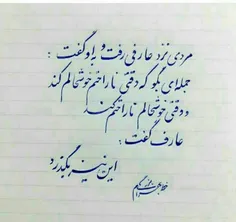 مردی نزد عارفی رفت و به او گفت :
جمله‌ای بگو که وقتی ناراحتم خوشحالم کند
و وقتی خوشحالم ناراحتم کند
عارف گفت :
این نیز بگذرد